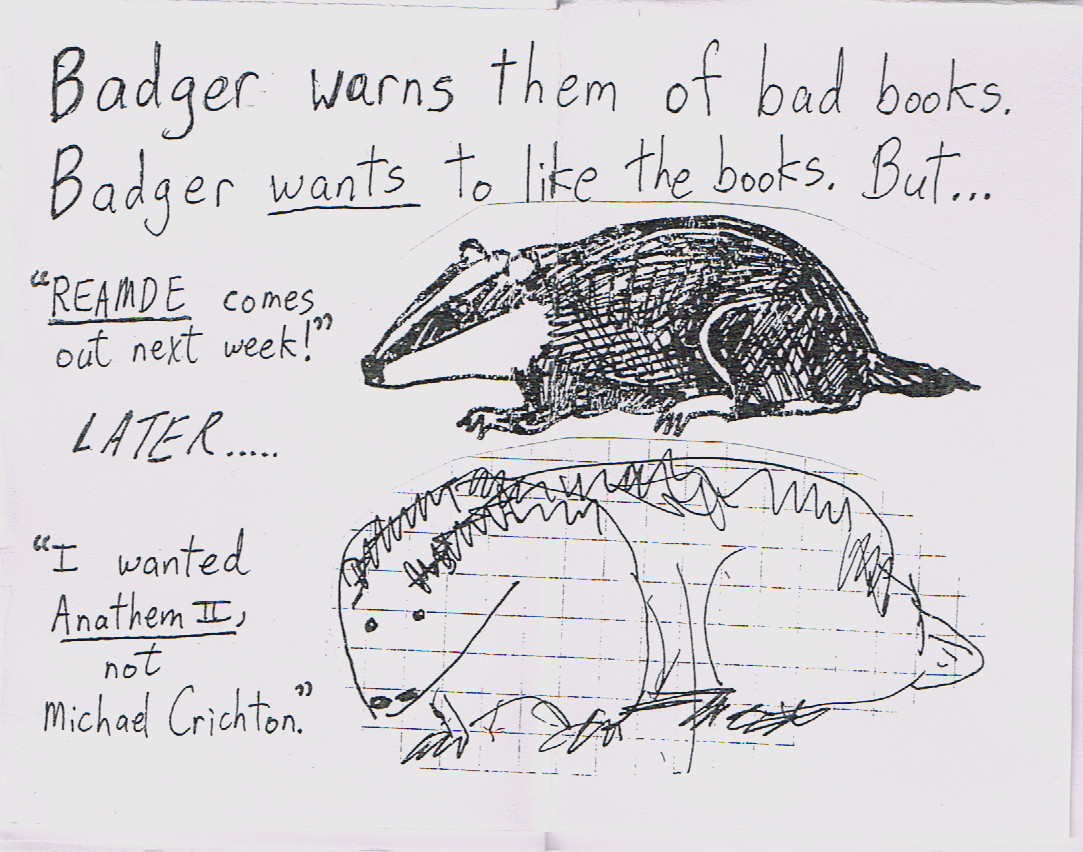 Badger warns them of bad books.
Badger wants to like the books. But...
"REAMDE comes
out next week!"
LATER.....
"I wanted
Anathem II,
not
Michael Crichton."